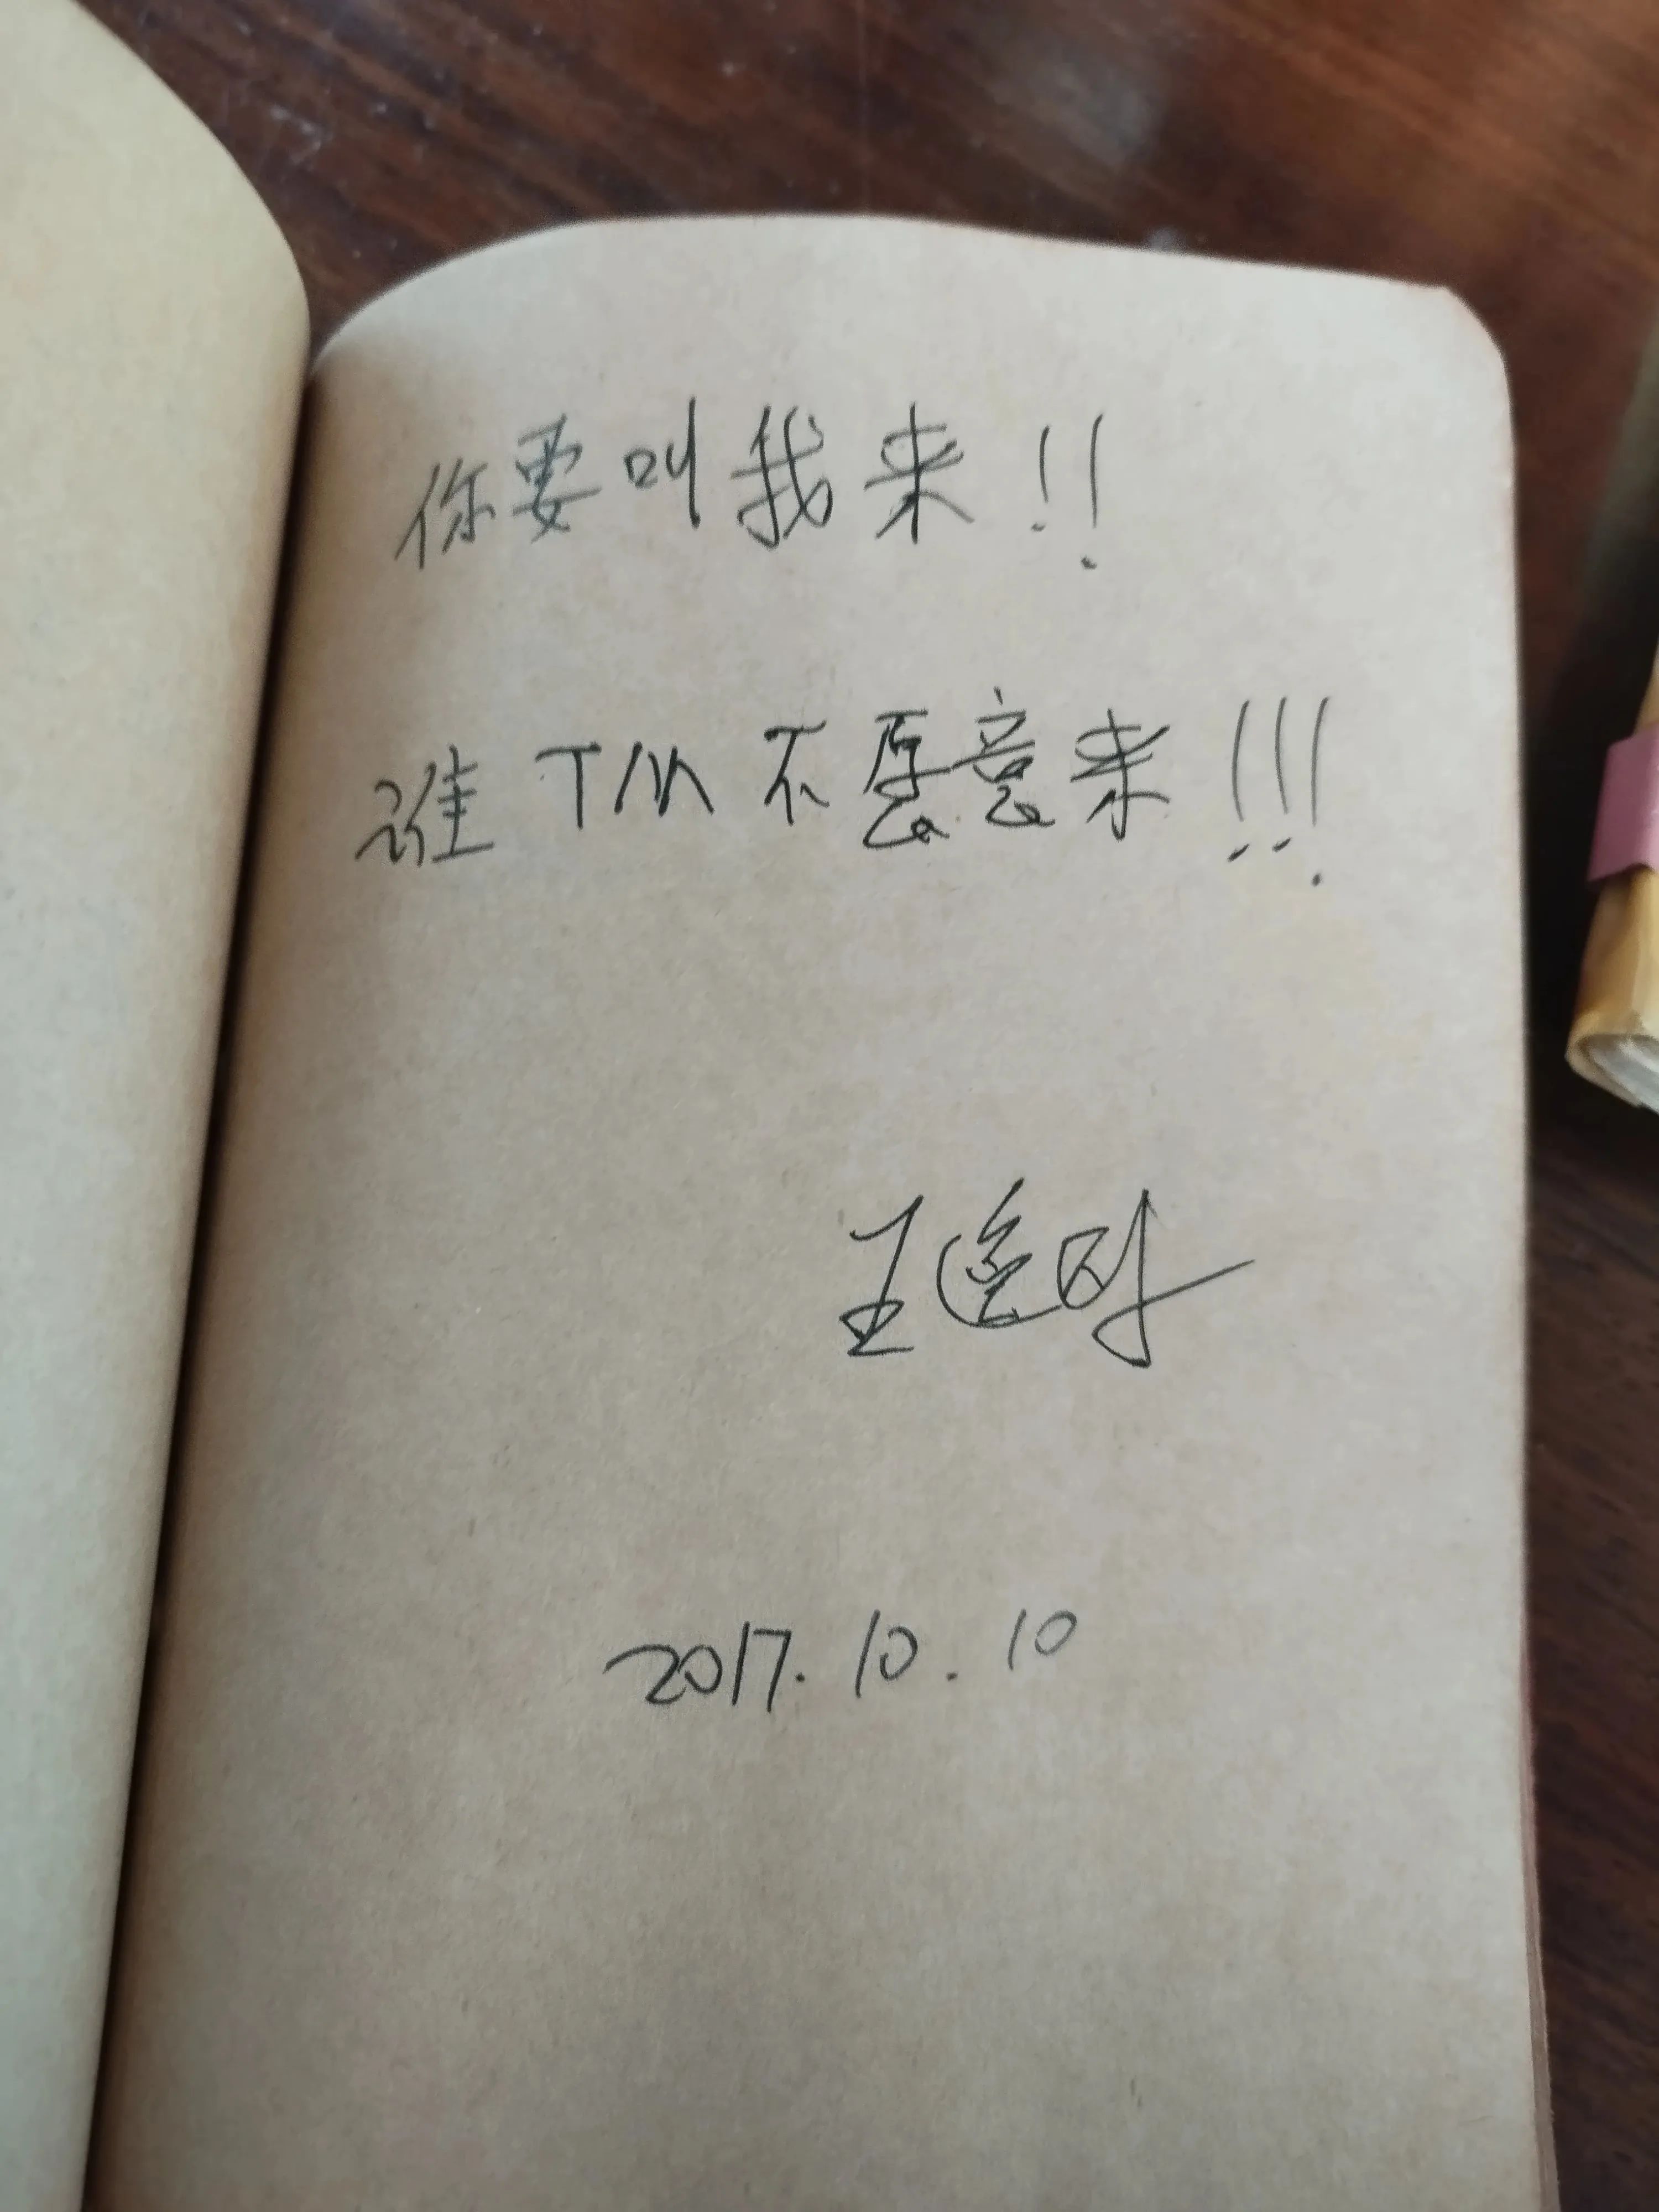 你要叫我来！！
谁TM不愿意来！！！
王遥时
2017.10.10